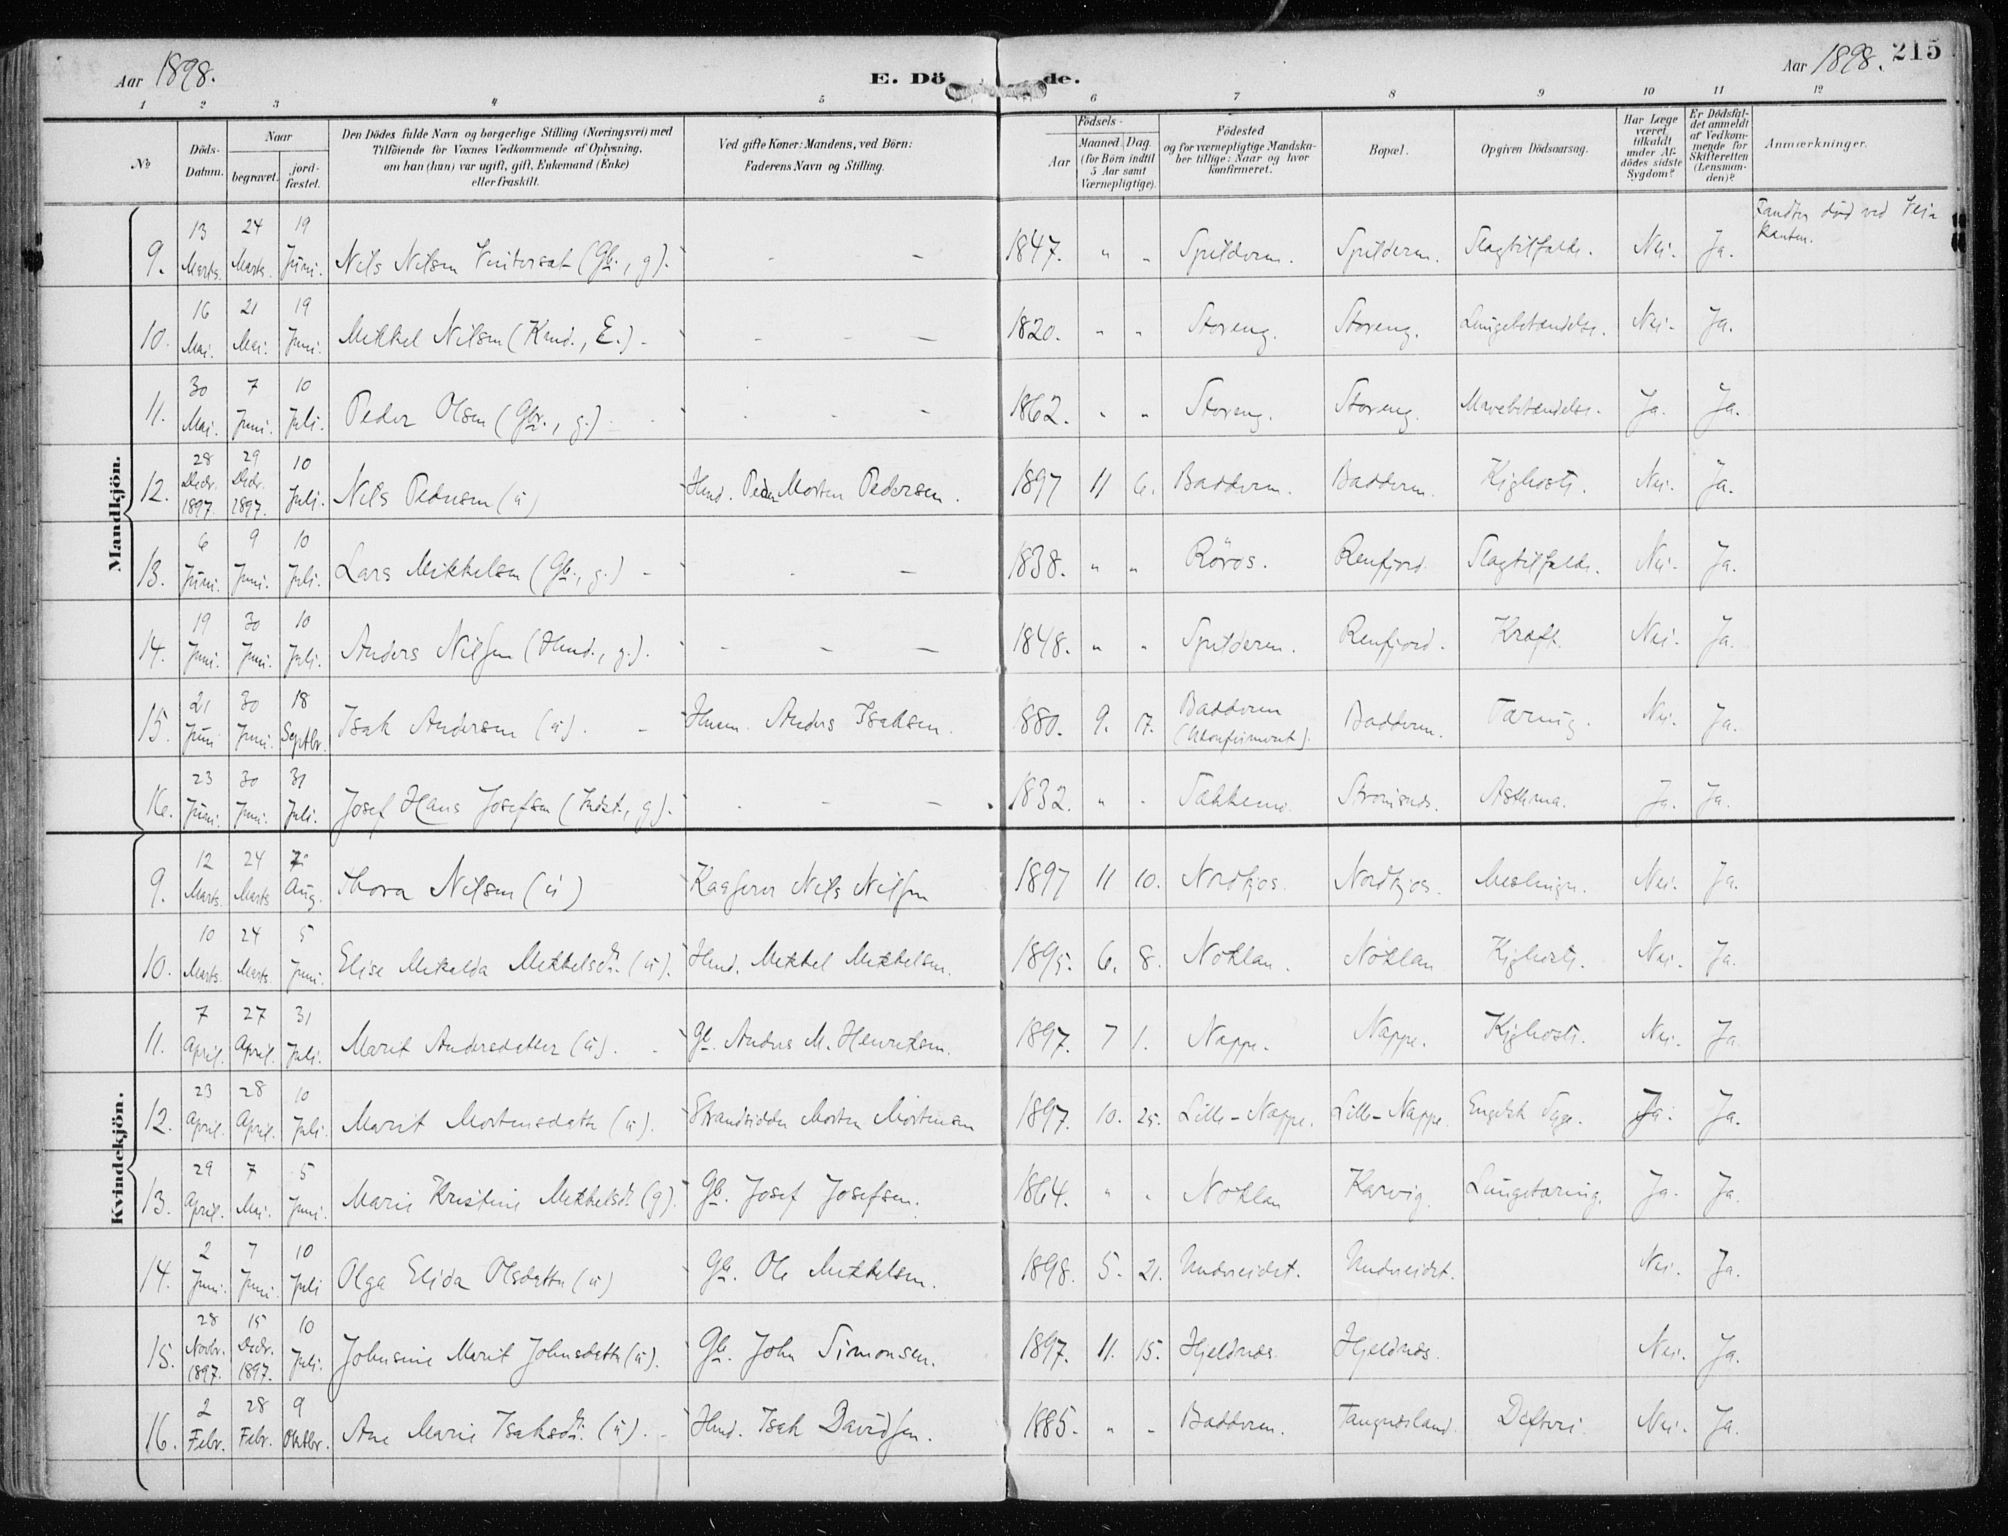 Aar 1898.
E. Dö de.
Aar 1898. 215
1 2 3 4 5 6 7 8 9 10 11 12
No
Döds-Datum.
Naar
begravet.
jord-fæstet.
Den Dödes fulde Navn og borgerlige Stilling (Næringsvei) med
Tilföiende for Voxnes Vedkommende af Oplysning,
om han (hun) var ugift, gift, Enkemand (Enke)
eller fraskilt.
Ved gifte Koner: Mandens, ved Börn:
Faderens Navn og Stilling.
Födsels-
Aar
Maaned. Dag.
(for Börn indtil
5 Aar samt
Værnepligtige).
Födested
og for værnepligtige Mandska-
ber tillige: Naar og hvor
konfirmeret.
Bopæl.
Opgiven Dödsaarsag.
Har Læge
været
tilkaldt
under Af-
dödes sidste
Sygdom?
Er Dödsfal-
det anmeldt
af Vedkom-
mende for
Skifteretten
(Lensman-
den)?
Anmærkninger.
Mandkjön.
9. 13 Marts. 24 Marts. 19 Juni. Nils Nilsen (Gbr., g). - - 1847. " " Spilderen. Spilderen. Slagtilfælde. Nei. Ja. død ved Vei kanten.
10. 16 Mai. 21 Mai. 19 Juni. Mikkel Nilsen (Kmd., E.). - - - 1820. " " Storeng. Storeng. Lungebetændelse. Nei. Ja.
11. 30 Mai. 7 Juni. 10 Juli. Peder Olsen (Gbr., g.) - - - 1862. " " Storeng. Storeng. Mavebetændelse. Ja. Ja.
12. 28 Decbr. 1897. 29 Decbr. 1897. 10 Juli. Nils Pedersen (u) Hmd. Morten Pedersen. 1897 11 6. Badderen. Badderen. Kighoste. Nei. Ja.
13. 6 Juni. 9 Juni. 10 Juli. Lars Mikkelsen (Gbr., g.) - - 1838. " " Röros. Renfjord. Slagtilfælde. Nei. Ja.
14. 19 Juni. 30 Juni. 10 Juli. Anders Nilsen (Hmd., g.). - - - 1848. " " Spilderen. Renfjord. Kræft. Nei. Ja.
15. 21 Juni 30 Juni. 18 Septbr. Isak Andersen (u). - Hmm. Anders Isaksen. 1880. 9. 17. Badderen (Ukonfirmeret). Badderen. Tæring. Nei. Ja.
16. 23 Juni. 30 Juni. 31 Juli. Josef Hans Josefsen (Indst., g). - - - 1832. " " Strömsnæs. Asthma. Ja. Ja.
Kvindekjön.
9. 12 Marts. 24 Marts 7 Aug. Thora Nilsen (u) Nils Nilsen 1897 11 10. Nordkjos. Nordkjos. Meslinger. Nei. Ja.
10. 10 Marts. 24 Marts. 5 Juni. Elise Mikalda Mikkelsdtr. (u). Hmd. Mikkel Mikkelsen. 1895. 6. 8. Noklan. Noklan Kighoste. Nei. Ja.
11. 7 April. 27 April. 31 Juli. Marit Andersdatter (u). Gb. Anders M. Henriksen. 1897. 7 1. Nappe. Nappe. Kighoste. Nei. Ja.
12. 23 April. 28 April. 10 Juli. Marit Mortensdatter (u). Strandsidder Morten Mortensen 1897. 10. 25. Lille-Nappe. Lille-Nappe. Engelsk Syge. Ja. Ja.
13. 29 April. 7 Mai. 5 Juni. Marie Kristine Mikkelsdtr. (g). Gb. Josef Josefsen. 1864. " " Noklan Karvig. Lungetæring. Ja. Ja.
14. 2 Juni. 7 Juni. 10 Juli Olga Elida Olsdatter (u) Gb. Ole Mikkelsen. 1898. 5. 21. Undereidet. Undereidet. Nei. Ja.
15. 28 Novbr. 1897. 15 Decbr. 1897. 10 Juli. Johnsine Marit Johnsdatter (u). Gb. John Simonsen. 1897. 11. 15. Hjeldnæs. Hjeldnæs. Nei. Ja.
16. 2 Febr. 28 Febr. 9 Oktbr. Ane Marie Isaksdtr. (u). - Hmd. Isak Davidsen. 1885. " " Badderen. Tangnæsland Difteri Nei. Ja.